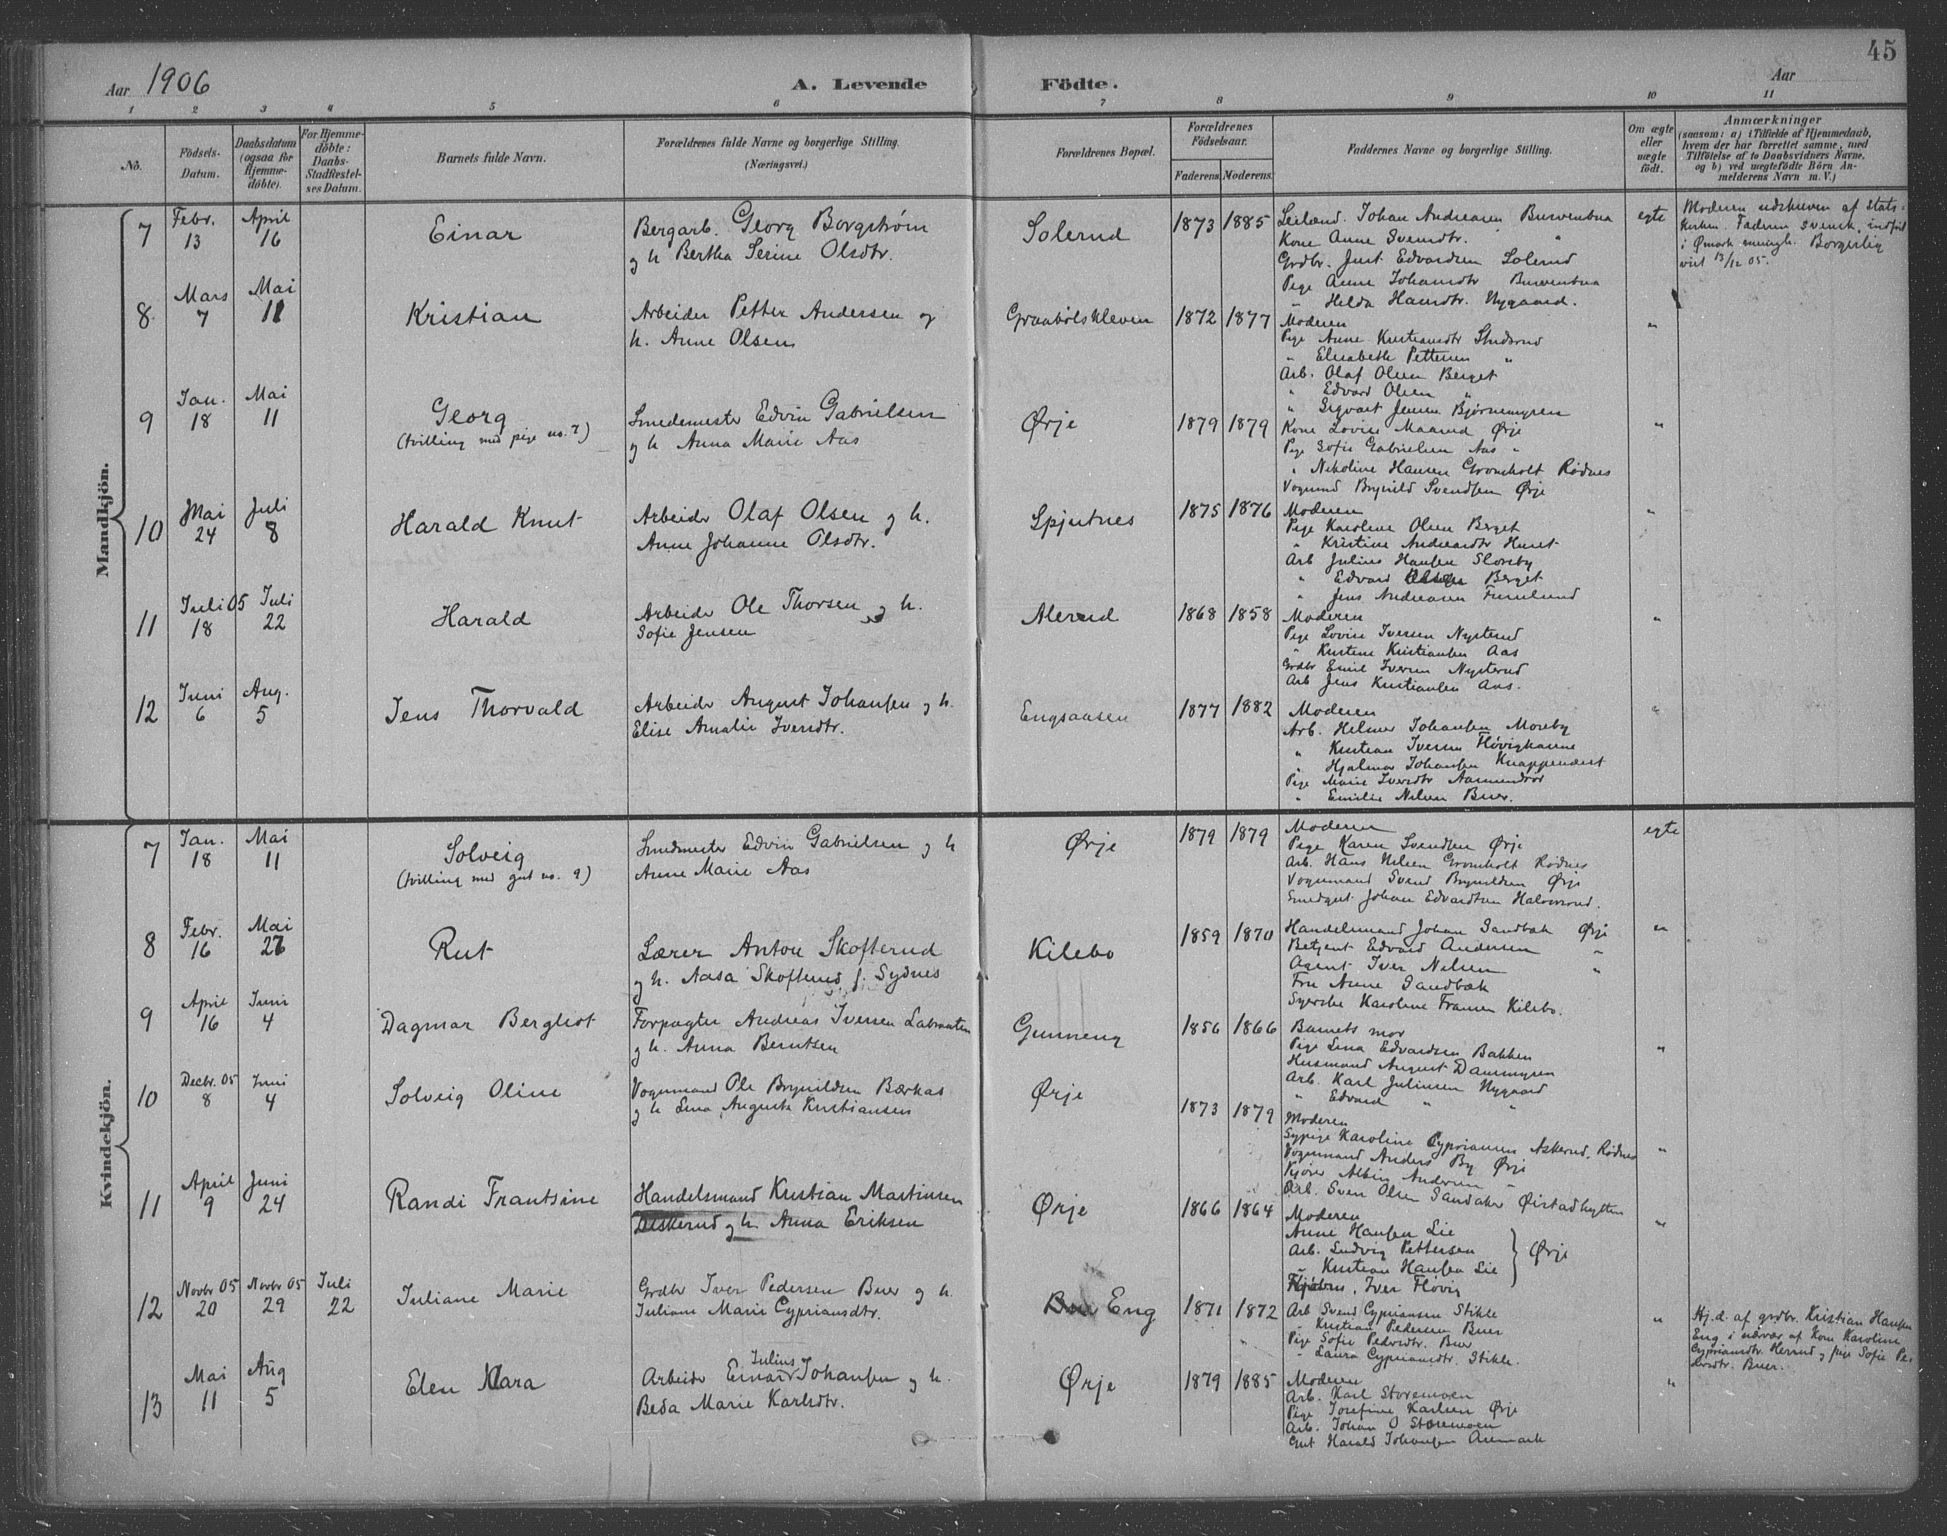 45
Aar 1906
A. Levende Födte.
Aar
1 2 3 4 5 6 7 8 9 10 11
No.
Födsels-Datum.
Daabsdatum (ogsaa for Hjemme-döbte).
For Hjemme-döbte: Daabs-Stadfæstel-ses Datum.
Barnets fulde Navn.
Forældrenes fulde Navne og borgerlige Stilling.
(Næringsvei.)
Forældrenes Bopæl.
Forældrenes Födselsaar.
Faderens. Moderens.
Faddernes Navne og borgerlige Stilling.
Om ægte eller uægte födt.
Anmærkninger
(saasom: a) i Tilfælde af Hjemmedaab,
hvem der har forrettet samme, med
Tilföielse af to Daabsvidners Navne,
og b) ved uægtefödte Börn An-
melderens Navn m. V.)
Mandkjön.
7 Febr. 13 April 16 Einar
Bergarb. Georg Borgstrøm
og h Bertha Serine Olsdtr.
Solerud 1873 1885
Leilænd. Johan Andreasen Burventua
Kone Anne Svendtr. "
Grdbr. Just Edvardsen Solerud
Pige Anne Johansdtr Burventua
" Helda Hansdtr. Nygaard.
egte
Moderen udskreven af Stats-
kirken. Faderen svensk, indført
i Ømark menigh. Borgerlig
viet 13/12 05.
8 Mars 7 Mai 11 Kristian
Arbeider Petter Andersen og
h. Anne Olsen
Graabølskleven 1872 1877
Moderen
Pige Anne Kristiansdtr Studsrud
" Elisabeth Pettersen "
Arb. Olaf Olsen Berget
" Edvard Olsen "
" Sigvart Jensen Bjørnemyren
"
9 Jan. 18 Mai 11 Georg
(tvilling med pige no. 7)
Smedemester Edvin Gabrielsen
og h. Anna Marie Aas
Ørje 1879 1879
Kone Lovise Maarud Ørje
Pige Sofie Gabrielsen Aas "
" Nikoline Hansen Gromholt Rødnes
Vognmd Brynild Svendsen Ørje
"
10 Mai 24 Juli 8 Harald Knut
Arbeider Olaf Olsen og h.
Anne Johanne Olsdtr.
Spjutnes 1875 1876
Moderen
Pige Karoline Olsen Berget
" Kristine Andreasdtr
Arb Julius Hansen Sloreby
" Edvard Olsen Berget
" Jens Andreasen
"
11 Juli 05 18 Juli 22 Harald
Arbeider Ole Thorsen og h.
Sofie Jensen
Alerud 1868 1858
Moderen
Pige Lovise Iversen Nysterud
" Kristine Kristiansen Aas
Grdbr Emil Iversen Nysterud
Arb Jens Kristiansen Aas.
"
12 Juni 6 Aug. 5 Jens Thorvald
Arbeider August Johansen og h.
Elise Amalie Iversdtr.
Engsaasen 1877 1882
Moderen
Arb. Helmer Johansen Moseby
" Kristian Iversen Fløvighavne
" Hjalmar Johansen Knappenæst
Pige Marie Iversdtr Aamundrød
" Emilie Nilsen Buer.
"
Kvindekjön.
7 Jan. 18 Mai 11 Solveig
(tvilling med gut no. 9)
Smedmester Edvin Gabrielsen og h
Anne Marie Aas
Ørje 1879 1879
Moderen
Pige Karen Svendsen Ørje
Arb. Hans Nilsen Gromholt Rødnes
Vognmand Svend Brynildsen Ørje
Smedgut Johan Edvardsen Halvorsrud.
egte
8 Febr. 16 Mai 27 Rut
Lærer Anton Skofterud
og h. Aasa Skofterud f. Sydnes
Kilebo 1859 1870
Handelsmand Johan Sandbæk Ørje
Betjent Edvard Andersen "
Agent Iver Nilsen "
Fru Anne Sandbæk
Syerske Karoline Fransen Kilebo.
"
9 April 16 Juni 4 Dagmar Bergliot
Forpagter Andreas Iversen Labraaten
og h. Anna Berntsen
Gunneng 1856 1866
Barnets mor
Pige Lina Edvardsen Bakken
Husmand August Dammyren
Arb. Karl Juliussen Nygaard
" Edvard " "
"
10 Decbr. 05 8 Juni 4 Solveig Oline
Vognmand Ole Brynildsen Bærkas
og h Lina Auguste Kristiansen
Ørje 1873 1879
Moderen
Sypige Karoline Cypriansen Askerud, Rødnes
Vognmand Anders By Ørje
Kjører Albin Andersen "
Arb. Sven Olsen Sandaker Øistadhytten
"
11 April 9 Juni 24 Randi Frantsine
Handelsmand Kristian Martinsen
Askerud og h. Anna Eriksen
Ørje 1866 1864
Moderen
Anne Hansen Lie
Arb. Ludvig Pettersen
" Kristian Hansen Lie
Ørje
Iver Fløvig
"
12 Novbr 05 20 Novbr 05 29 Juli 22 Juliane Marie
Grdbr Iver Pedersen Buer og h.
Juliane Marie Cypriansdtr.
Bue Eng 1871 1872
Arb Svend Cypriansen Stikle
" Kristian Pedersen Buer
Pige Sofie Pedersdtr. Buer
" Laura Cypriansdtr. Stikle.
"
Hj.d. af grdbr. Kristian Hansen
Eng i nærvær af Kone Karoline
Cypriansdtr. Herrud og pige Sofie Pe-
dersdtr. Buer.
13 Mai 11 Aug 5 Elen Klara
Arbeider Einar Julius Johansen og h.
Beda Marie Karlsdtr.
Ørje 1879 1885
Moderen
Arb. Karl Storemoen
Pige Josefine Karlsen Ørje
Arb. Johan O Storemoen
Gut Harald Johansen Aremark
"